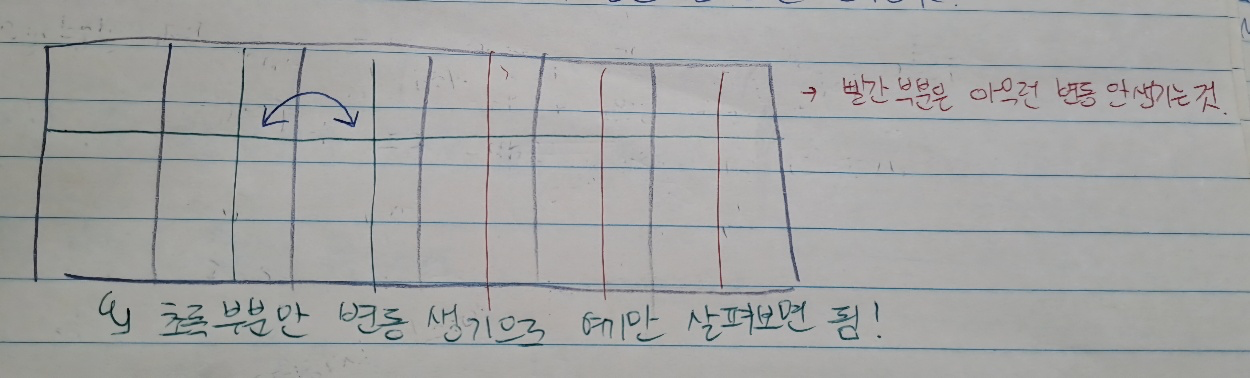 → 빨간 부분은 아무런 변동 안생기는 것.
위 초록 부분만 변동 생기므로 여기만 살펴보면 됨!